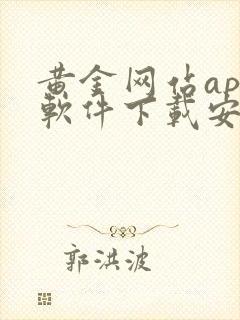 黄金网佔ap
軟件下載安
郭洪波